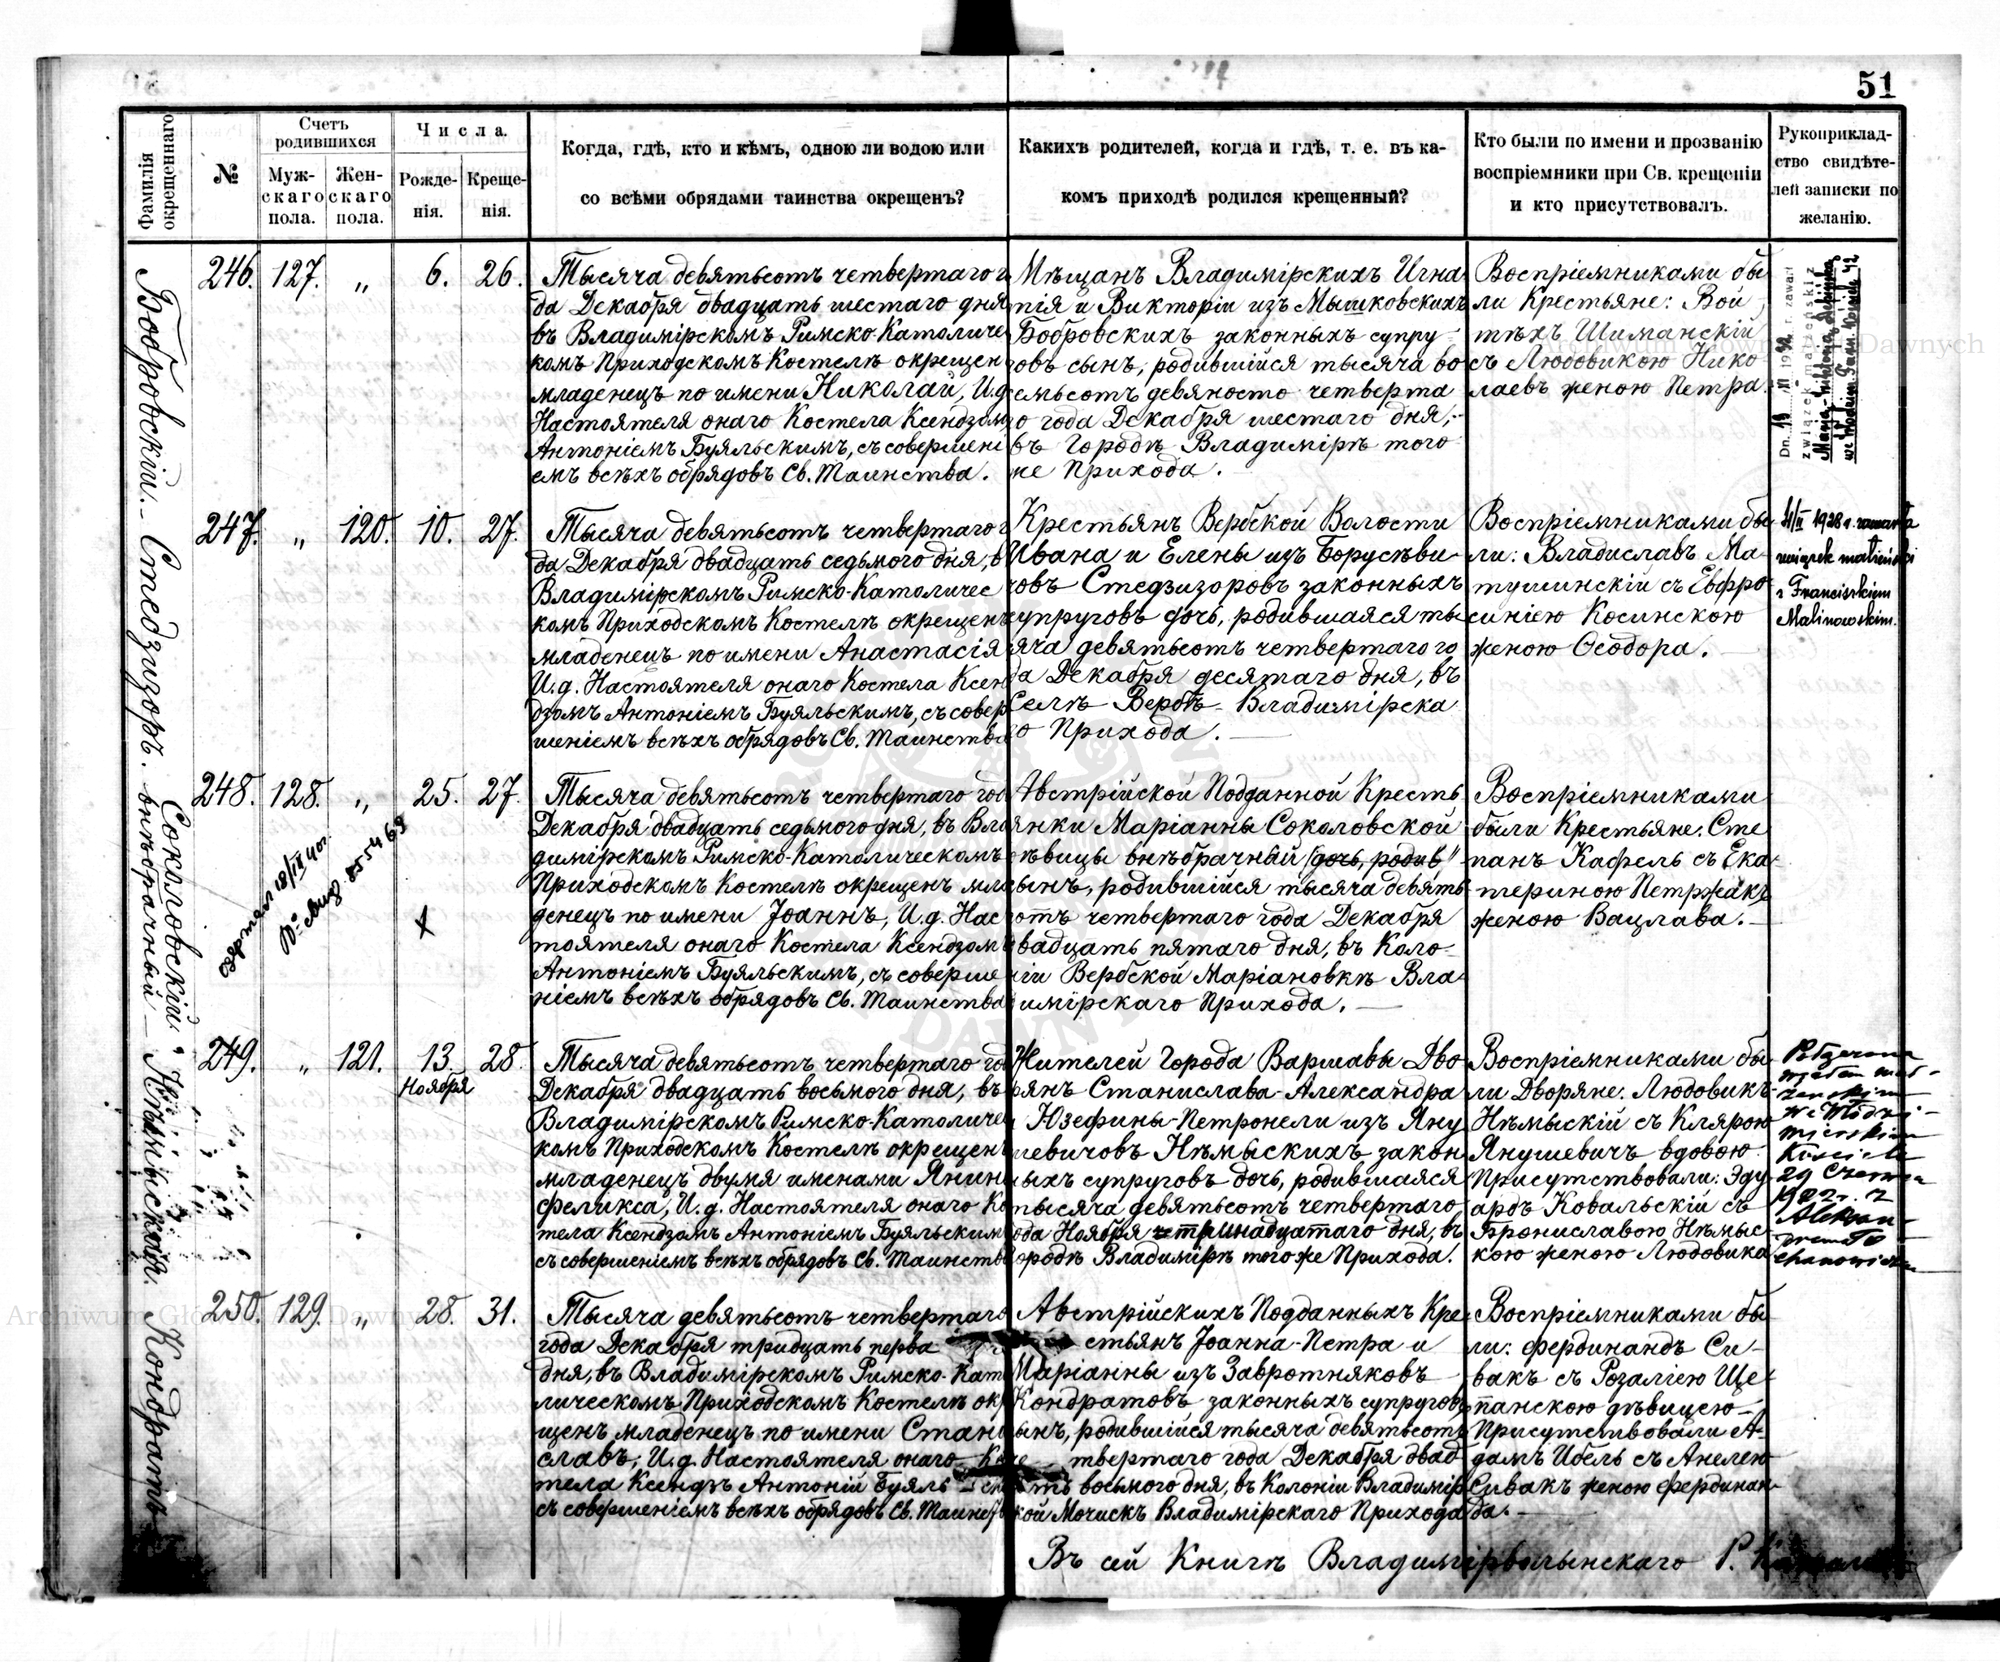 51
Фамилія окрещеннаго
№
Счетъ родившихся
Муж-скаго пола.
Жен-скаго пола.
Числа.
Рожде-нія.
Креще-нія.
Когда, гдѣ, кто и кѣмъ, одною ли водою или
со всѣми обрядами таинства окрещенъ?
Какихъ родителей, когда и гдѣ, т. е. въ ка-
комъ приходѣ родился крещенный?
Кто были по имени и прозванію
воспріемники при Св. крещеніи
и кто присутствовалъ.
Рукоприклад-
ство свидѣте-
лей записки по
желанію.
Бобровскій.
246. 127. „ 6. 26.
Тысяча девятьсотъ четвертаго г
да Декабря двадцать шестаго дня
въ Владимірскомъ Римско-Католиче
комъ Приходскомъ Костелѣ окрещен
младенецъ по имени Николай, И.д.
Настоятеля онаго Костела Ксендзом
Антоніемъ Буяльскимъ, съ совершені
емъ всѣхъ обрядовъ Св. Таинства.
Мѣщанъ Владимірскихъ Игна
тія и Викторіи изъ Мышковскихъ
Бобровскихъ законныхъ супру-
овъ сынъ, родившійся тысяча во
семьсотъ девяносто четверта
о года Декабря шестаго дня,
въ Городѣ Владимірѣ того
же Прихода.
Воспріемниками бы
ли Крестьяне: Вой
тѣхъ Шиманскій
съ Людовикою Нико
лаевъ женою Петра.
związek małżeński z
Стедзизоръ.
247. „ 120. 10. 27.
Тысяча девятьсотъ четвертаго г
да Декабря двадцать седьмого дня, в
Владимірскомъ Римско-Католичес
комъ Приходскомъ Костелѣ окрещенъ
младенецъ по имени Анастасія
И.д. Настоятеля онаго Костела Ксен
дзомъ Антоніемъ Буяльскимъ, съ совер
шеніемъ всѣхъ обрядовъ Св. Таинства
Крестьянъ Вербской Волости
Ивана и Елены изъ Борусѣви-
човъ Стедзизоровъ законныхъ
супруговъ дочь, родившаяся ты-
яча девятьсотъ четвертаго го
да Декабря десятаго дня, въ
Селѣ Вербѣ Владимірска
о Прихода.
Воспріемниками бы
ли: Владиславъ Ма-
тушинскій съ Евфро
синіею Косинскою
женою Ѳеодора.
4/II 1928 r. zawarła
związek małżeński
z Franciszkiem
Malinowskim.
Соколовскій, внѣбрачный
248. 128. „ 25. 27.
Тысяча девятьсотъ четвертаго год
Декабря двадцать седьмого дня, въ Вла
димірскомъ Римско-Католическомъ
Приходскомъ Костелѣ окрещенъ мла
денецъ по имени Іоаннъ, И.д. Нас
тоятеля онаго Костела Ксендзомъ
Антоніемъ Буяльскимъ, съ соверше
ніемъ всѣхъ обрядовъ Св. Таинства
Австрійской Подданной Кресть
янки Маріанны Соколовской
ѣвицы внѣбрачный (дочь, родив)
сынъ, родившійся тысяча девять
отъ четвертаго года Декабря
вадцать пятаго дня, въ Коло-
ніи Вербской Маріановкѣ Вла-
димірскаго Прихода.
Воспріемниками
были Крестьяне: Сте
панъ Кафель съ Ека-
териною Петржакъ
женою Вацлава.
Нѣмыская.
249. „ 121. 13. 28.
Ноября
Тысяча девятьсотъ четвертаго го
Декабря двадцать восьмого дня, въ
Владимірскомъ Римско-Католичес
комъ Приходскомъ Костелѣ окрещен
младенецъ двумя именами Янин
Феликса, И.д. Настоятеля онаго Ко
тела Ксендзомъ Антоніемъ Буяльским
съ совершеніемъ всѣхъ обрядовъ Св. Таинств
Жителей Города Варшавы Дво
рянъ Станислава-Александра
и Юзефины-Петронели изъ Яну
шевичовъ Нѣмыскихъ закон
ныхъ супруговъ дочь, родившаяся
тысяча девятьсотъ четвертаго
ода Ноября тринадцатаго дня, въ
ородѣ Владимірѣ того же Прихода.
Воспріемниками бы
ли Дворяне: Людовикъ
Нѣмыскій съ Клярою
Янушевичъ вдовою.
Присутствовали: Эду
ардъ Ковальскій съ
Брониславою Нѣмыс
кою женою Людовика
Połączona
węzłem mał-
żeńskim
we Włodzi-
mierskim
Kościele
29 Czerwca
1922 r. z
Кондратъ
250. 129. „ 28. 31.
Тысяча девятьсотъ четвертаго
года Декабря тридцать перва
дня, въ Владимірскомъ Римско-Като
лическомъ Приходскомъ Костелѣ окр
щенъ младенецъ по имени Стани
славъ, И.д. Настоятеля онаго Ко
тела Ксендзъ Антоній Буяль
съ совершеніемъ всѣхъ обрядовъ Св. Таинств
Австрійскихъ Подданныхъ Кре-
стьянъ Іоанна-Петра и
Маріанны изъ Завротняковъ
Кондратовъ законныхъ супруговъ
ынъ, родившійся тысяча девятьсотъ
твертаго года Декабря двад
ть восьмого дня, въ Колоніи Владимір
кой Мочискъ Владимірскаго Прихода
Воспріемниками бы
ли: Фердинандъ Си-
вакъ съ Розаліею Ще-
панскою дѣвицею
Присутствовали А-
дамъ Ибель съ Анелею
Сивакъ женою Фердинан-
да.
Въ сей Книгѣ Владимірволынскаго Р.